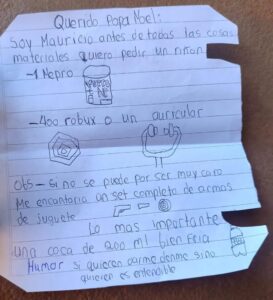 Querido Papa Noel:
Soy Mauricio antes de todas las cosas
materiales quiero pedir un riñon
-1 Nepro
-400 robux o un auricular
Obs- si no se puede por ser muy caro
Me encantaria un set completo de armas
de juguete
Lo mas importante
una coca de 200 ml bien fria
Humor si quieren darme denme sino
quieren es entendible